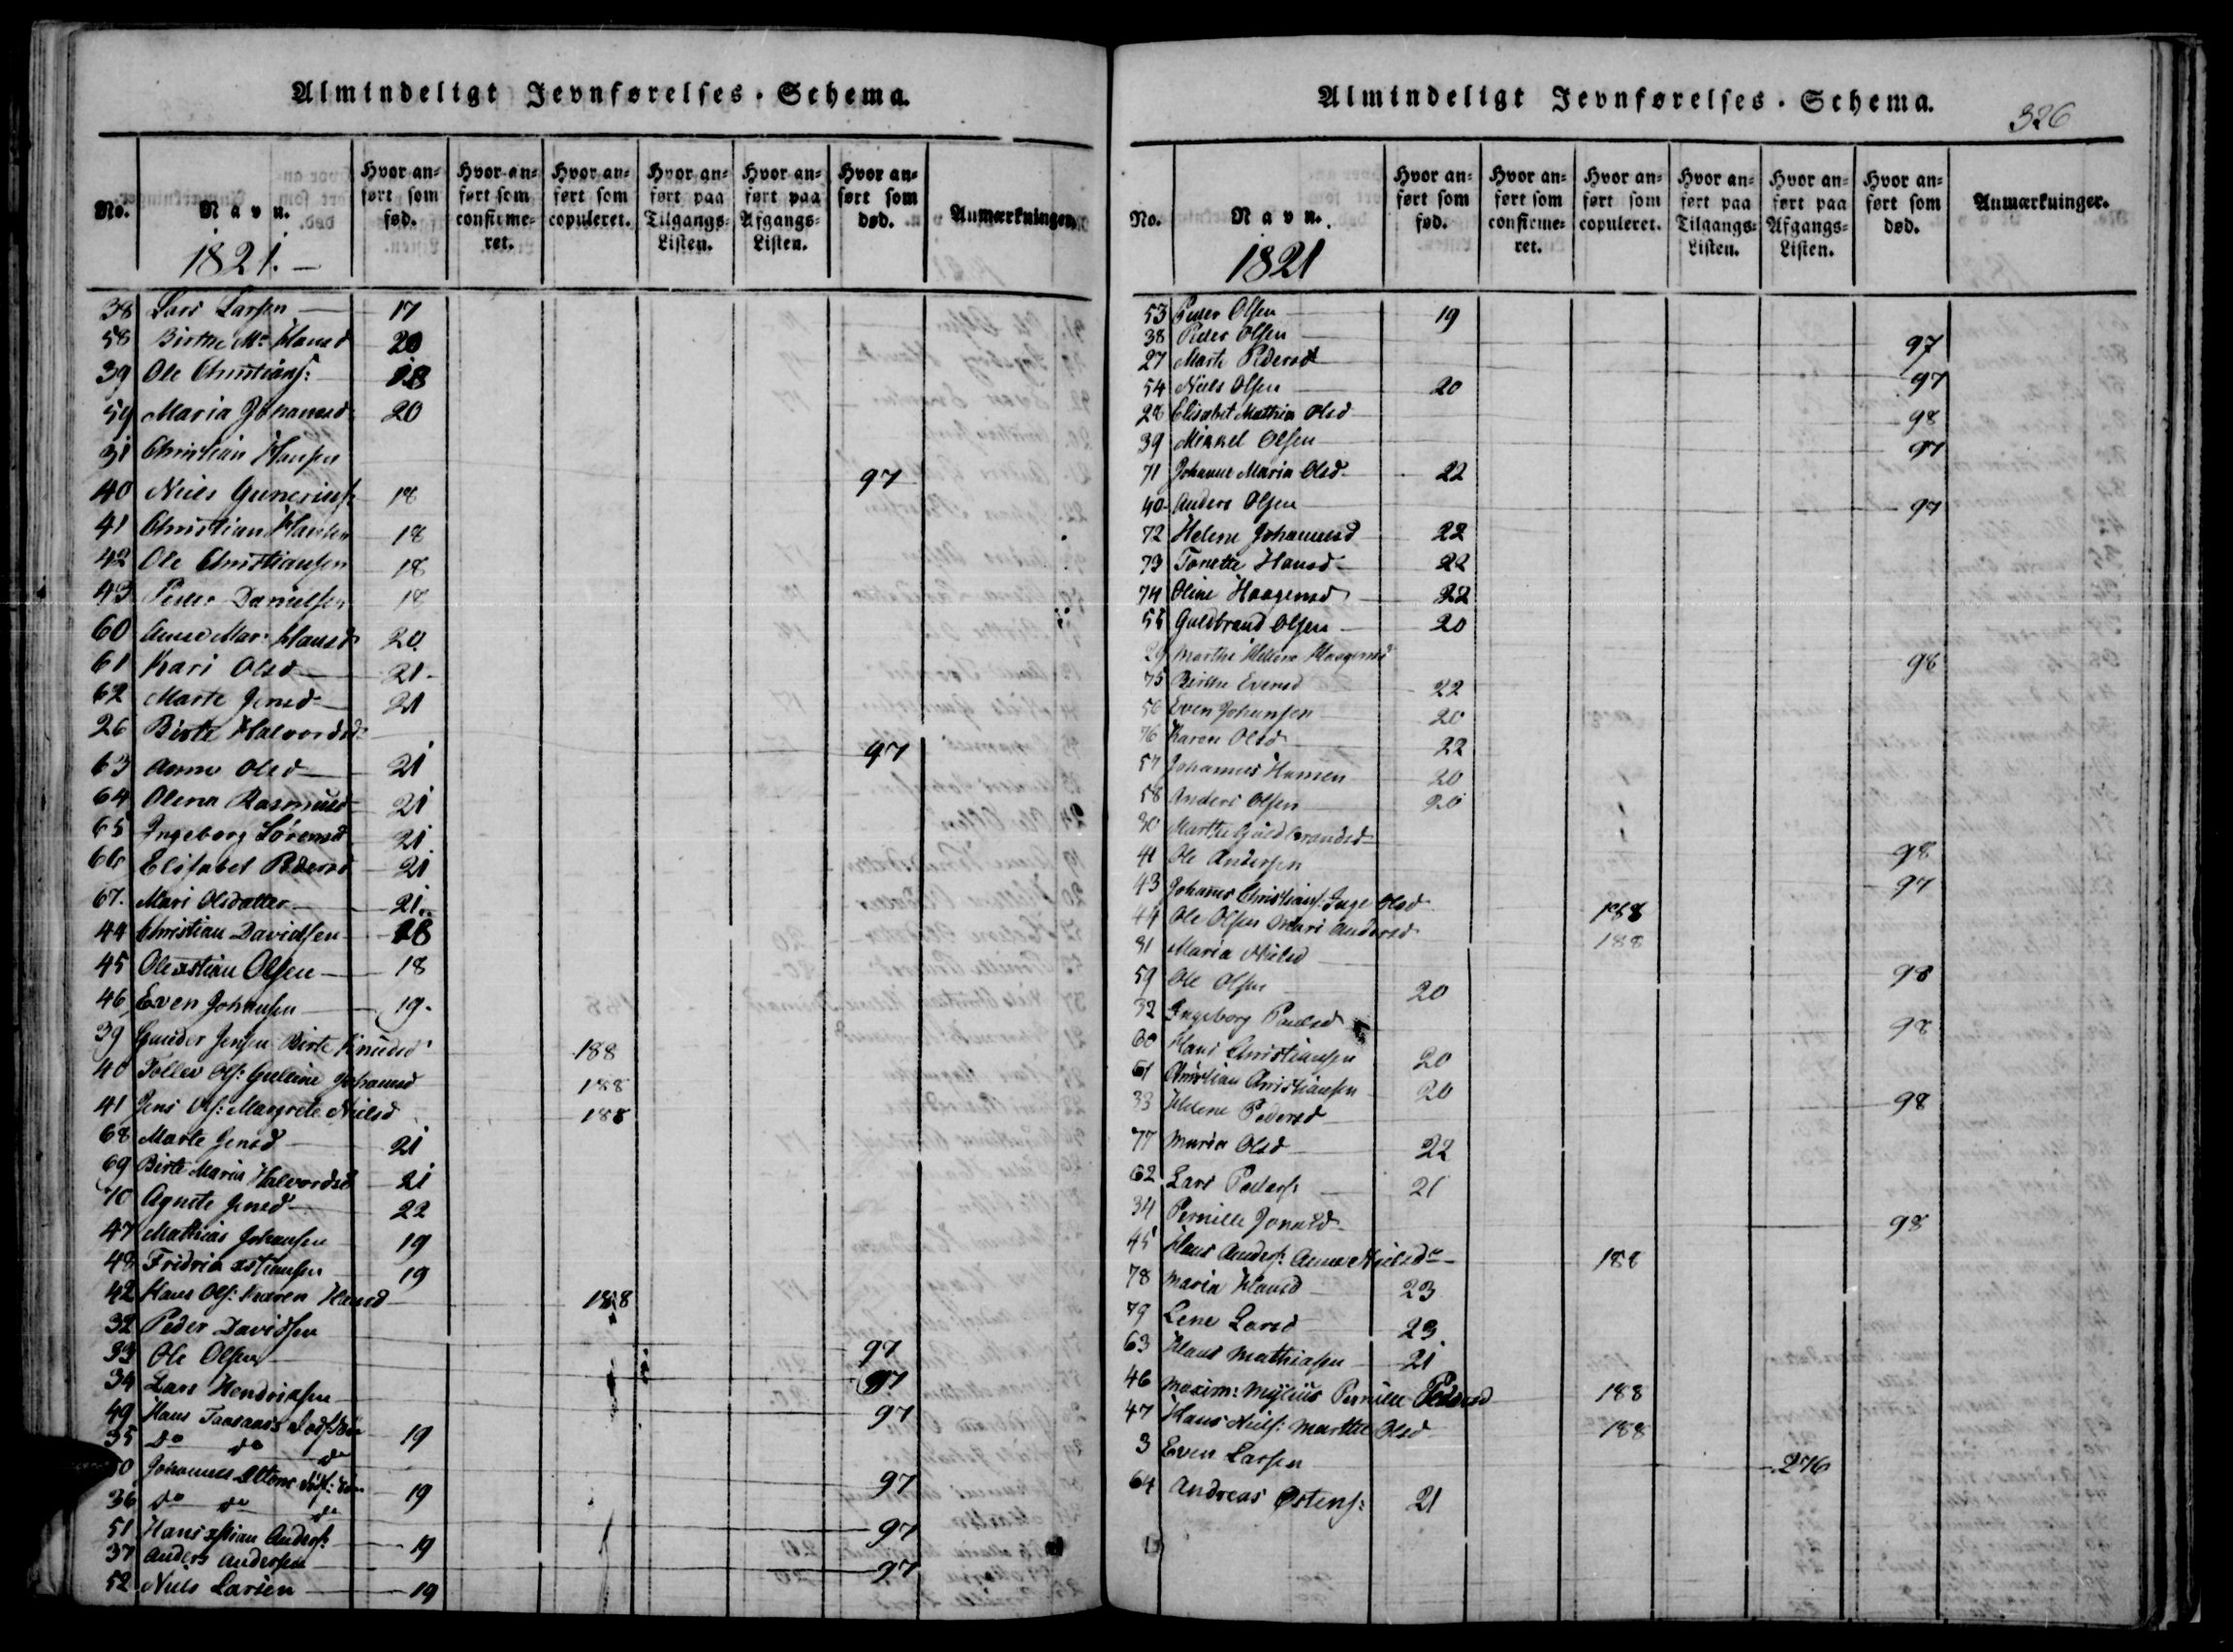 Almindeligt Jevnførelses-Schema.
No. Navn. Hvor anført som fød. Hvor anført som confirmeret. Hvor anført som copuleret. Hvor anført paa Tilgangs-Listen. Hvor anført paa Afgangs-Listen. Hvor anført som død. Anmærkninger.
1821.
38 Lars Larsen 17
58 Birthe Me Hansd 20
39 Ole Christians: 18
59 Maria Johannesd 20
31 Christian Hansen 97
40 Niels Guneriusf: 18
41 Christian Hansen 18
42 Ole Christiansen 18
43 Peder Danielsen 18
60 Anne Mar: Hansd 20
61 Kari Olsd 21
62 Marte Jensd 21
26 Birte Halvordsd 97
63 Anne Olsd 21
64 Olena Rasmusd 21
65 Ingeborg Sørensd 21
66 Elisabet Pedersd 21
67. Mari Olsdatter 21
44 Christian Davidsen 18
45 Ole xstian Olsen 18
46 Even Johansen 19
39 Gunder Jensen Birte Knudsd 188
40 Tollev Ols: Guline Johannsd 188
41 Jens Ols: Margrete Nielsd 188
68 Marte Jensd 21
69 Birte Maria Halvordsd 21
70 Agnete Jensd 22
47 Mathias Johansen 19
48 Fridrik xstiansen 19
42 Hans Ols: Karen Hansd 188
32 Peder Davidsen 97
33 Ole Olsen 97
34 Lars Hendriksen 97
49 Hans 19
35 Do do do 97
50 Johannes 19
36 do do do 97
51 Hans xstian Anders: 19
37 Anders Andersen 97
52 Niels Larsen 19
Almindeligt Jevnførelses-Schema.
326
No. Navn. Hvor anført som fød. Hvor anført som confirmeret. Hvor anført som copuleret. Hvor anført paa Tilgangs-Listen. Hvor anført paa Afgangs-Listen. Hvor anført som død. Anmærkninger.
1821
53 Peder Olsen 19
38 Peder Olsen 97
27 Marte Pedersd 97
54 Niels Olsen 20
28 Elisabet Mathea Olsd 98
39 Mikkel Olsen 97
71 Johanne Maria Olsd 22
40 Anders Olsen 97
72 Helene Johannesd 22
73 Tonette Hansd 22
74 Oline Haagensd 22
55 Guldbrand Olsen 20
29 Marthe Hellene Haagensd 98
75 Birthe Evensd 22
56 Even Johansen 20
76 Karen Olsd 22
57 Johannes Hansen 20
58 Anders Olsen 20
30 Marthe Guldbrandsd 98
41 Ole Andersen 97
43 Johanes Christians: Inge Olsd 188
44 Ole Olsen Mari Andersd 188
31 Maria Nielsd 98
59 Ole Olsen 20
32 Ingeborg Paulsd 98
60 Hans Christiansen 20
61 Christian Christiansen 20
33 Helene Pedersd 98
77 Maria Olsd 22
62 Lars Peders: 21
34 Pernille Jonasd 98
45 Hans Anders: Anne Nielsdr 188
78 Maria Hansd 23
79 Lene Larsd 23
63 Hans Mathiasen 21
46 Maxim: Mylius Pernille Pedersd 188
47 Hans Niels: Marthe Olsd 188
3 Even Larsen 276
64 Andreas Østens: 21